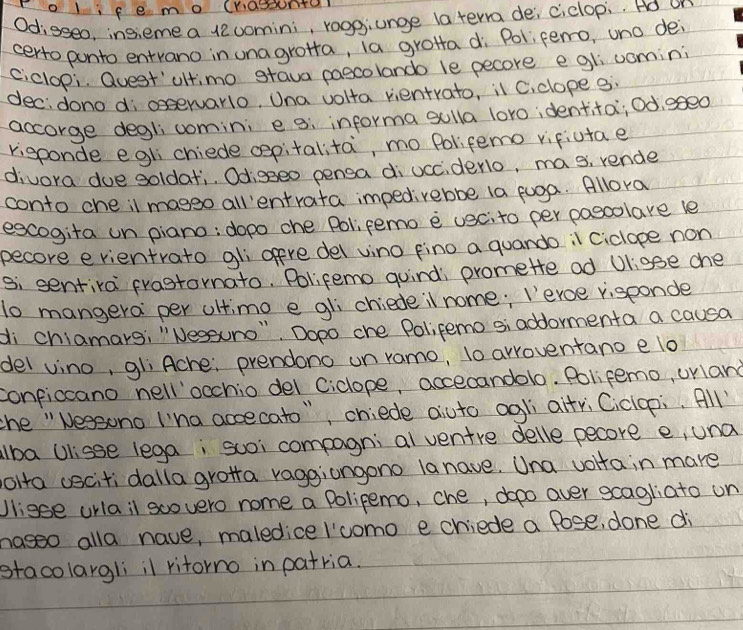 Polifemo (riassunto)
Odisseo, insieme a 12 uomini, raggiunge la terra dei ciclopi. Ad un
certo punto entrano in una grotta, la grotta di Polifemo, uno dei
ciclopi. Quest'ultimo stava pascolando le pecore e gli uomini
decidono di osservarlo. Una volta rientrato, il Ciclope si
accorge degli uomini e si informa sulla loro identità; Odisseo
risponde e gli chiede ospitalità, ma Polifemo rifiuta e
divora due soldati. Odisseo pensa di ucciderlo, ma si rende
conto che il masso all'entrata impedirebbe la fuga. Allora
escogita un piano: dopo che Polifemo è uscito per pascolare le
pecore e rientrato gli offre del vino fino a quando il ciclope non
si sentirà frastornato. Polifemo quindi promette ad Ulisse che
lo mangerà per ultimo e gli chiede il nome; l'eroe risponde
di chiamarsi "Nessuno". Dopo che Polifemo si addormenta a causa
del vino, gli Achei prendono un ramo, lo arroventano e lo
conficcano nell'occhio del Ciclope, accecandolo. Polifemo, urland
che "Nessuno l'ha accecato", chiede aiuto agli altri Ciclopi. All'
alba Ulisse lega i suoi compagni al ventre delle pecore e, una
volta usciti dalla grotta raggiungono la nave. Una volta in mare
Ulisse urla il suo vero nome a Polifemo, che, dopo aver scagliato un
masso alla nave, maledice l'uomo e chiede a Poseidone di
stacolargli il ritorno in patria.